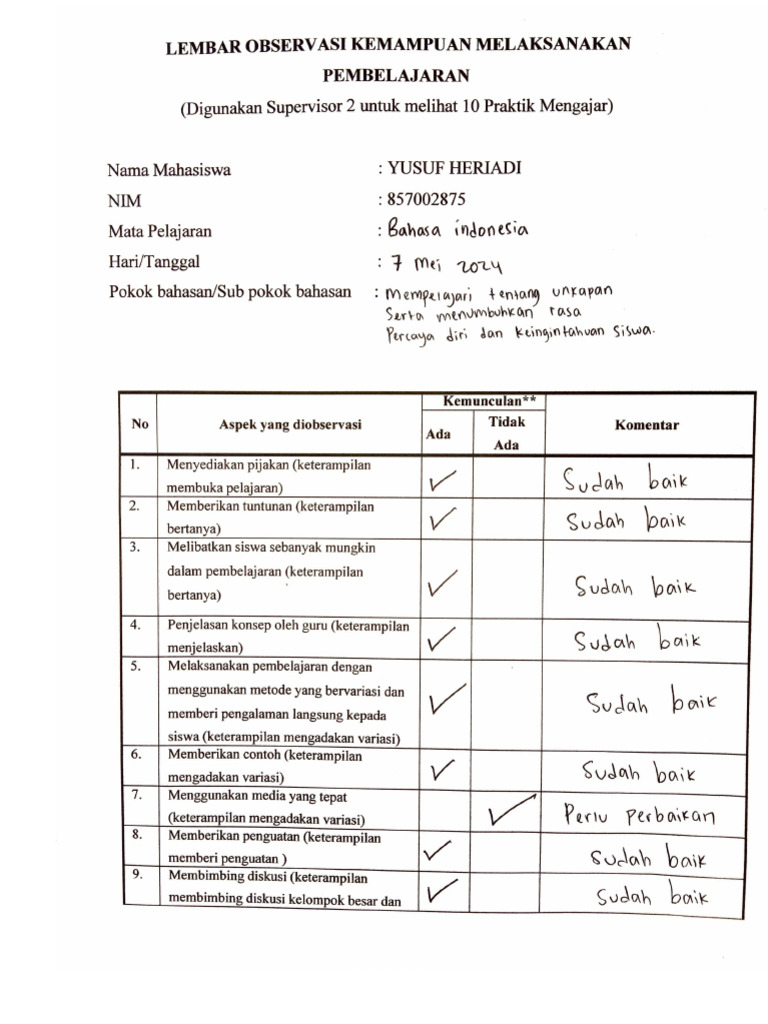 LEMBAR OBSERVASI KEMAMPUAN MELAKSANAKAN
PEMBELAJARAN
(Digunakan Supervisor 2 untuk melihat 10 Praktik Mengajar)
Nama Mahasiswa : YUSUF HERIADI
NIM : 857002875
Mata Pelajaran : Bahasa indonesia
Hari/Tanggal : 7 Mei 2024
Pokok bahasan/Sub pokok bahasan : Mempelajari tentang unkapan
Serta menumbuhkan rasa
Percaya diri dan Keingintahuan Siswa.
No Aspek yang diobservasi Kemunculan** Komentar
Ada Tidak
Ada
1. Menyediakan pijakan (keterampilan
membuka pelajaran) ✓ Sudah baik
2. Memberikan tuntunan (keterampilan
bertanya) ✓ Sudah baik
3. Melibatkan siswa sebanyak mungkin
dalam pembelajaran (keterampilan
bertanya) ✓ Sudah baik
4. Penjelasan konsep oleh guru (keterampilan
menjelaskan) ✓ Sudah baik
5. Melaksanakan pembelajaran dengan
menggunakan metode yang bervariasi dan
memberi pengalaman langsung kepada
siswa (keterampilan mengadakan variasi) ✓ Sudah baik
6. Memberikan contoh (keterampilan
mengadakan variasi) ✓ Sudah baik
7. Menggunakan media yang tepat
(keterampilan mengadakan variasi) ✓ Perlu perbaikan
8. Memberikan penguatan (keterampilan
memberi penguatan ) ✓ Sudah baik
9. Membimbing diskusi (keterampilan
membimbing diskusi kelompok besar dan ✓ Sudah baik